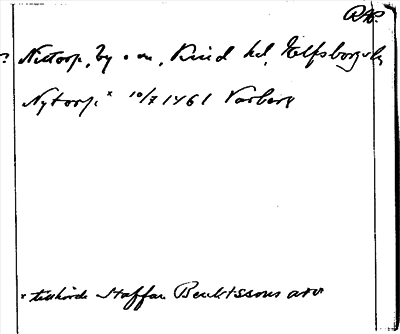 RAP
? Nittorp, by o sn, Kind hd, Elfsborgs l.
Nytorp × 10/7 1461 Varberg
× tillhörde Staffan Benktssons arv